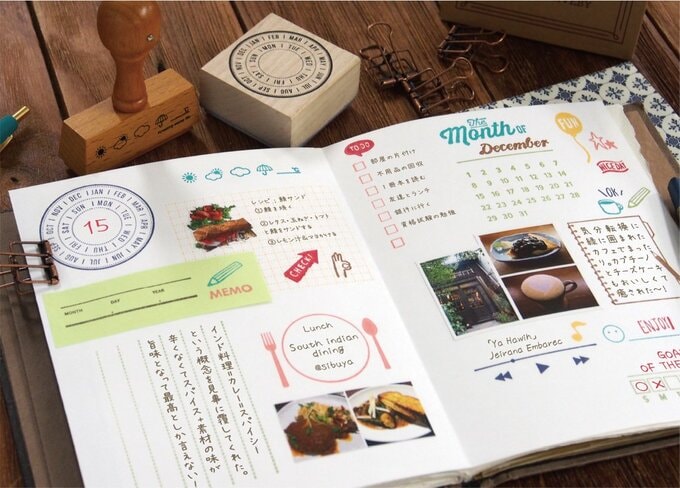 DEC JAN FEB MAR APR MAY JUN JUL AUG SEP OCT NOV
SUN MON TUE WED THU FRI SAT
DEC JAN FEB MAR APR MAY JUN JUL AUG SEP OCT NOV
SUN MON TUE WED THU FRI SAT
15
MONTH DAY YEAR
MEMO
レシピ:鯖サンド
①鯖を焼く
②レタス・玉ねぎ・トマト
と鯖をサンドする
CHECK!
インド料理=カレー=スパイシー
という概念を見事に覆してくれた。
辛くなくてスパイス+素材の味が
旨味となって最高としか言えない!
Lunch
South Indian
dining
@Sibuya
TO DO
部屋の片付け
不用品の回収
1冊本を読む
友達とランチ
銀行に行く
資格試験の勉強
The
Month OF
December
1 2 3 4 5 6 7
8 9 10 11 12 13 14
15 16 17 18 19 20 21
22 23 24 25 26 27 28
29 30 31
FUN
NICE ONE
気分転換に
緑に囲まれた
とチーズケーキ
もおいしくて
癒された〜!
"Ya Hawlh"
Jeirana Embarec
ENJOY!
GOAL
OF THE
S M